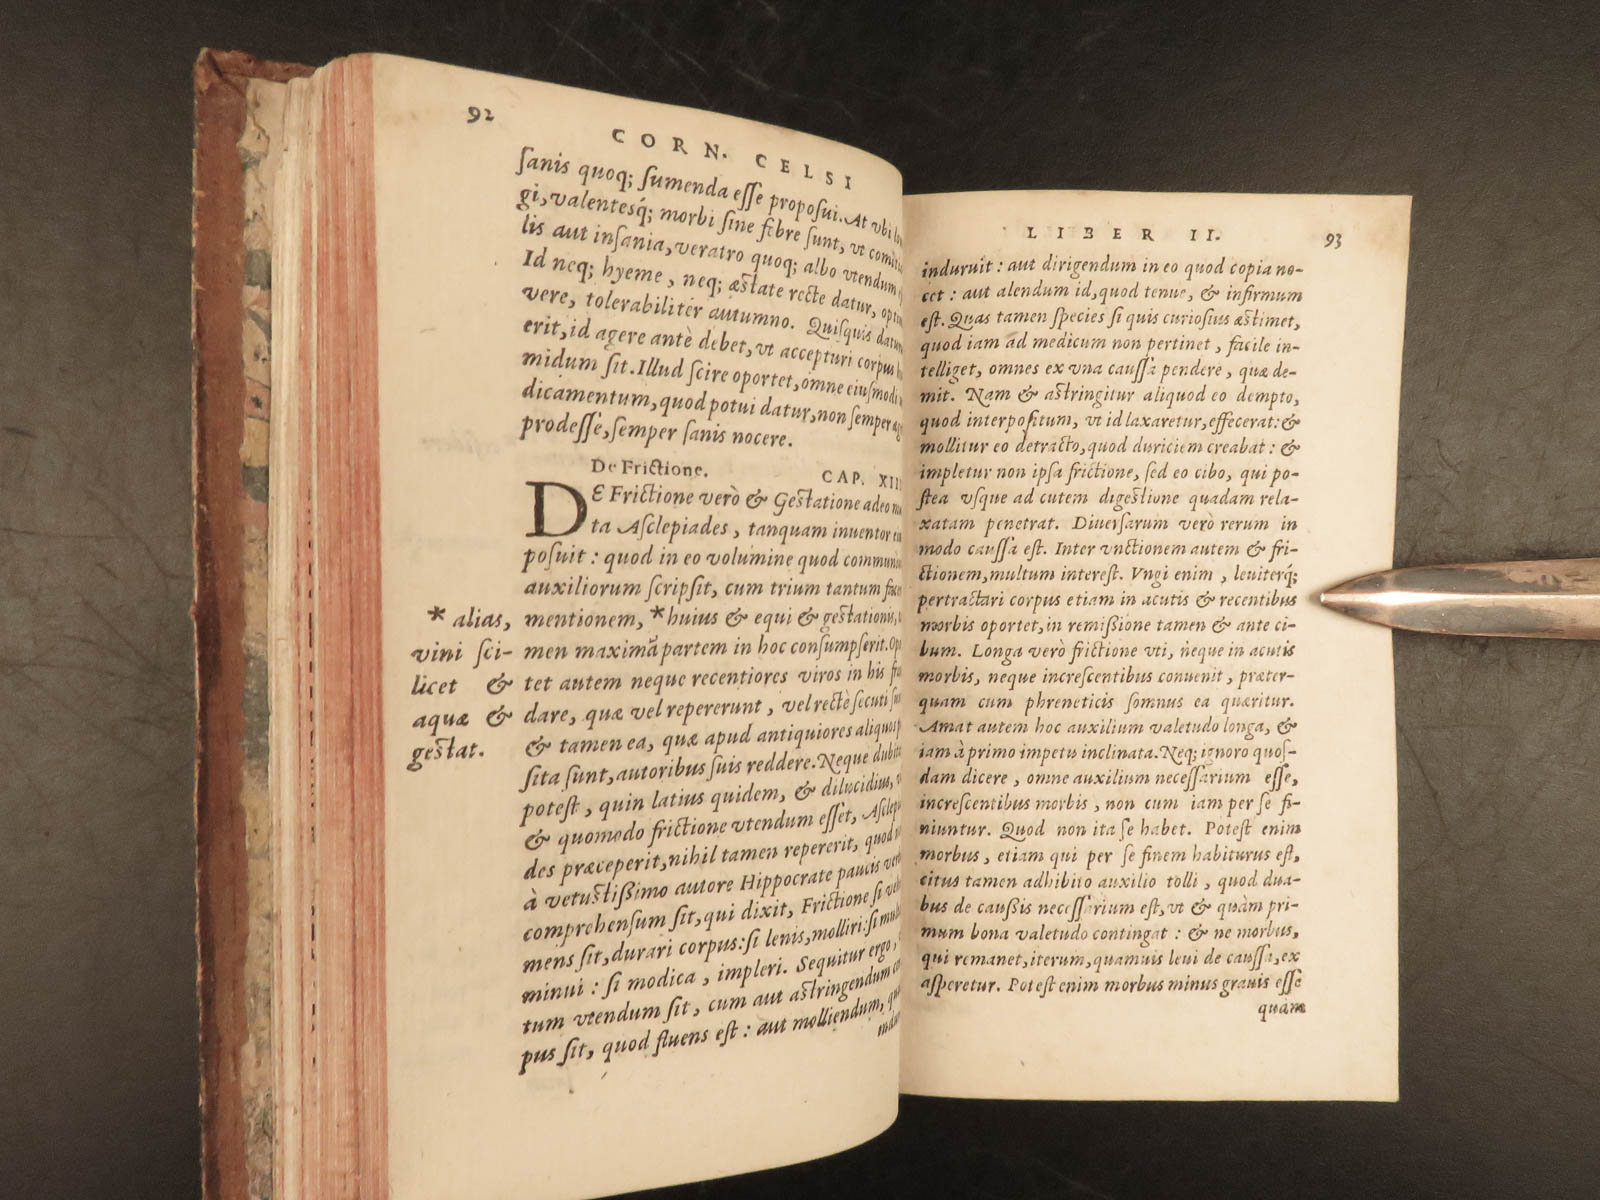 92
CORN. CELSI
ſanis quoq; ſumenda eſſe propoſui. At vbi
gi, valentesq́; morbi ſine febre ſunt, vt
lis aut inſania, veratro quoq; albo vtendum
Id neq; hyeme, neq; æſtate recte datur,
vere, tolerabiliter autumno. Quiſquis
erit, id agere antè debet, vt accepturi corpus
midum ſit. Illud ſcire oportet, omne eiuſmodi
dicamentum, quod potui datur, non ſemper
prodeſſe, ſemper ſanis nocere.
De Frictione. CAP.
DE Frictione verò & Geſtatione adeo
ta Aſclepiades, tanquam inuentor
poſuit: quod in eo volumine quod
auxiliorum ſcripſit, cum trium tantum
mentionem, *huius & equi & geſtationis,
men maximā partem in hoc conſumpſerit.
tet autem neque recentiores viros in his
dare, quæ vel repererunt, vel rectè ſecuti
& tamen ea, quæ apud antiquiores
ſita ſunt, autoribus ſuis reddere. Neque
poteſt, quin latius quidem, & dilucidius,
& quomodo frictione vtendum eſſet,
des præceperit, nihil tamen repererit, quod
à vetuſtißimo autore Hippocrate paucis
comprehenſum ſit, qui dixit, Frictione ſi
mens ſit, durari corpus: ſi lenis, molliri: ſi
minui: ſi modica, impleri. Sequitur ergo,
tum vtendum ſit, cum aut aſtringendum
pus ſit, quod fluens eſt: aut molliendum,
* alias,
vini ſci-
licet &
aquæ &
geſtat.
LIBER II. 93
induruit: aut dirigendum in eo quod copia no-
cet: aut alendum id, quod tenue, & infirmum
eſt. Quas tamen ſpecies ſi quis curioſius æſtimet,
quod iam ad medicum non pertinet, facile in-
telliget, omnes ex vna cauſſa pendere, quæ de-
mit. Nam & aſtringitur aliquod eo dempto,
quod interpoſitum, vt id laxaretur, effecerat: &
mollitur eo detracto, quod duriciem creabat: &
impletur non ipſa frictione, ſed eo cibo, qui po-
ſtea vſque ad cutem digeſtione quadam rela-
xatam penetrat. Diuerſarum verò rerum in
modo cauſſa eſt. Inter vnctionem autem & fri-
ctionem, multum intereſt. Vngi enim, leuiterq́;
pertractari corpus etiam in acutis & recentibus
morbis oportet, in remißione tamen & ante ci-
bum. Longa verò frictione vti, neque in acutis
morbis, neque increſcentibus conuenit, præter-
quam cum phreneticis ſomnus ea quæritur.
Amat autem hoc auxilium valetudo longa, &
iam à primo impetu inclinata. Neq; ignoro quoſ-
dam dicere, omne auxilium neceſſarium eſſe,
increſcentibus morbis, non cum iam per ſe fi-
niuntur. Quod non ita ſe habet. Poteſt enim
morbus, etiam qui per ſe finem habiturus eſt,
citus tamen adhibito auxilio tolli, quod dua-
bus de caußis neceſſarium eſt, vt & quàm pri-
mum bona valetudo contingat: & ne morbus,
qui remanet, iterum, quamuis leui de cauſſa, ex
aſperetur. Poteſt enim morbus minus grauis eſſe
quàm